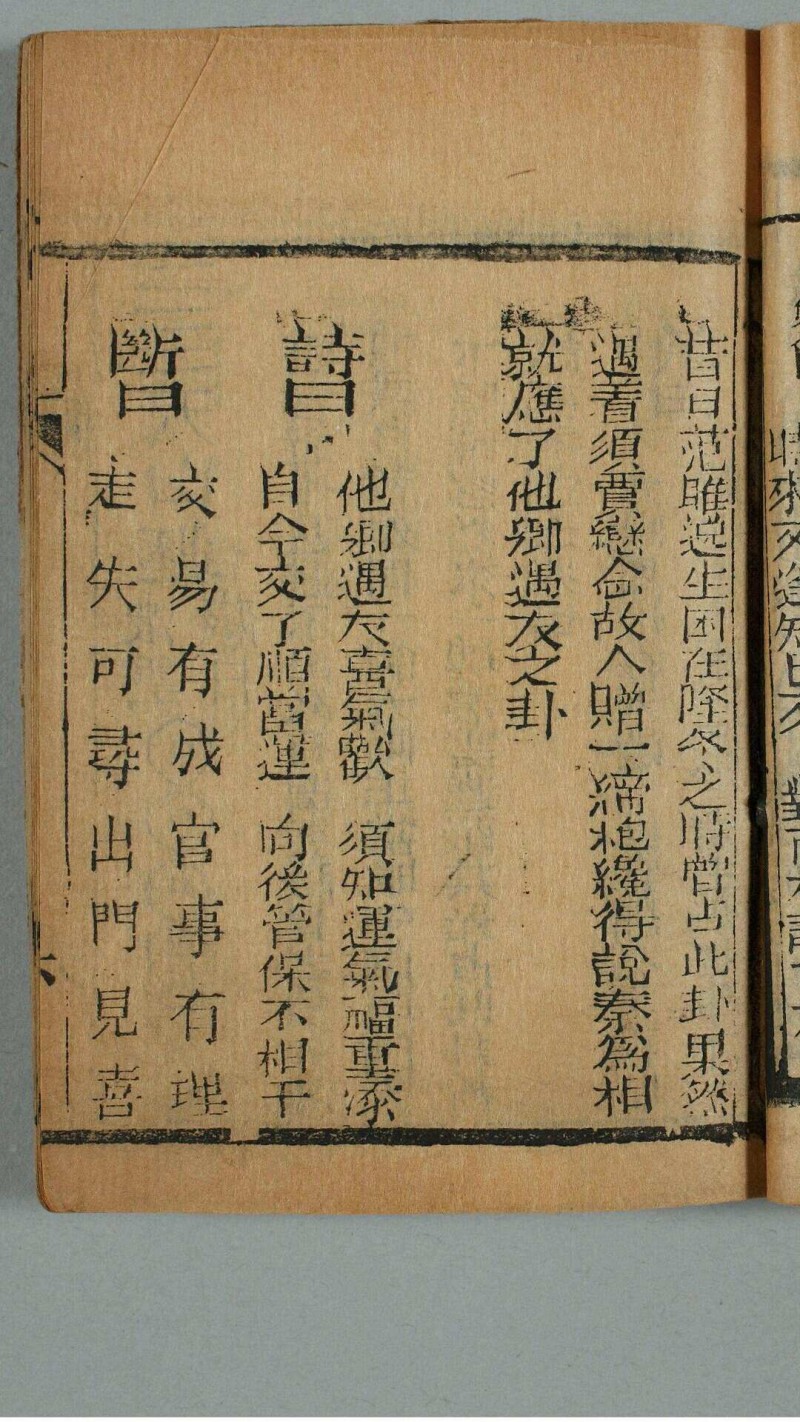 昔日范雎逃生困在隆冬之時曾占此卦果然
遇着須賈戀念故人贈一綈袍纔得說秦為相
就應了他鄉遇友之卦
詩曰
他鄉遇友喜氣歡　須知運氣福重添
自今交了順當運　向後管保不相干
斷曰
交易有成官事有理
走失可尋出門見喜
六